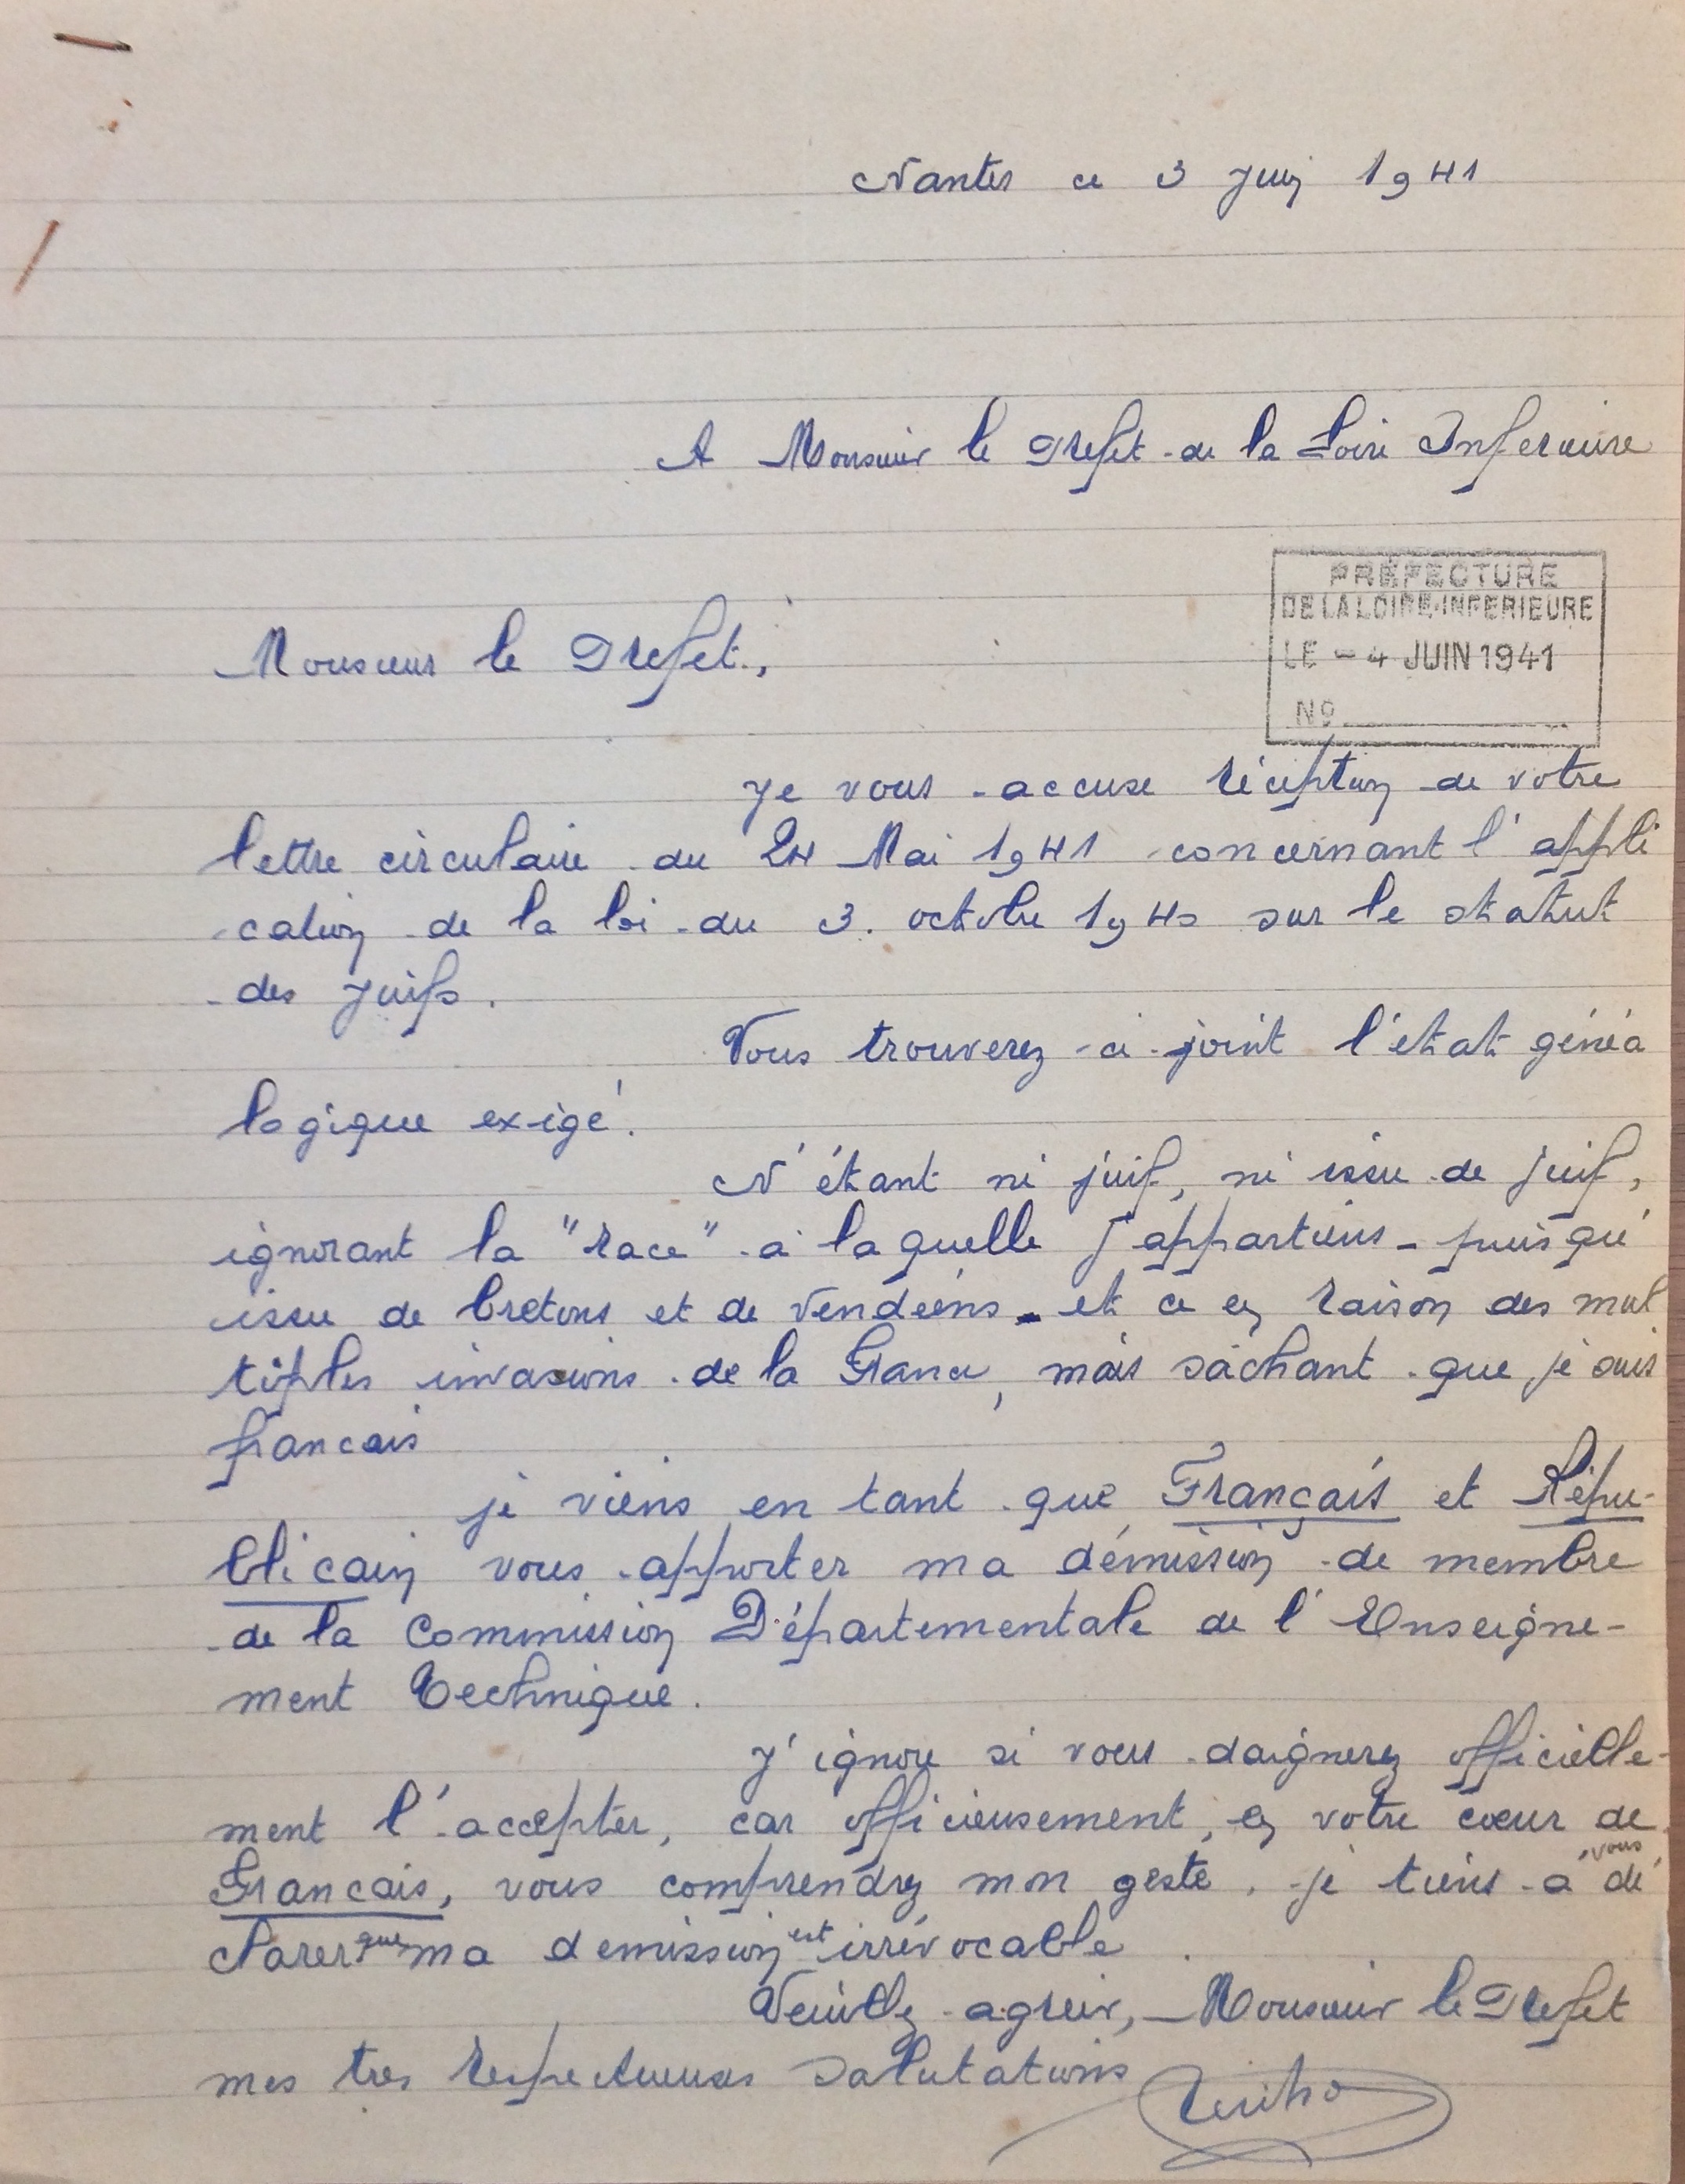 Nantes ce 3 Juin 1941
A Monsieur le Prefet de la Loire Inferieure
PRÉFECTURE
DE LA LOIRE-INFERIEURE
LE - 4 JUIN 1941
No
Monsieur le Prefet,
Je vous accuse réception de votre
lettre circulaire du 24 Mai 1941 concernant l'appli
cation de la loi du 3. octobre 1940 sur le statut
des Juifs.
Vous trouverez ci-joint l'état généa
logique exigé.
N'étant ni juif, ni issu de juif,
ignorant la "race" à laquelle j'appartiens - puisqu'
issu de bretons et de vendéens - et ce en raison des mul
tiples invasions de la France, mais sachant que je suis
francais
je viens en tant que Français et Répu-
blicain vous apporter ma démission de membre
de la Commission Départementale de l'Enseigne-
ment Technique.
J'ignore si vous daignerez officielle-
ment l'accepter, car officieusement, en votre cœur de
Francais, vous comprendrez mon geste. je tiens à vous dé
clarer que ma demission est irrévocable
Veuillez agréer, Monsieur le Prefet
mes tres respectueuses salutations